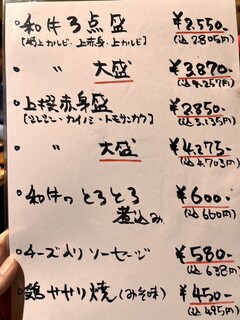 ・和牛3点盛 ¥2.550-
[極上カルビ・上赤身・上カルビ] (込2805円)
・〃 大盛 ¥3.870-
(込4.257円)
・上撰赤身盛 ¥2850-
[シンシン・カイノミ・トモサンカク] (込3.135円)
・〃 大盛 ¥4.275-
(込4.703円)
・和牛のとろとろ ¥600-
煮込み (込660円)
・チーズ入りソーセージ ¥580-
(込638円)
・鶏ササリ焼(みそ味) ¥450-
(込495円)